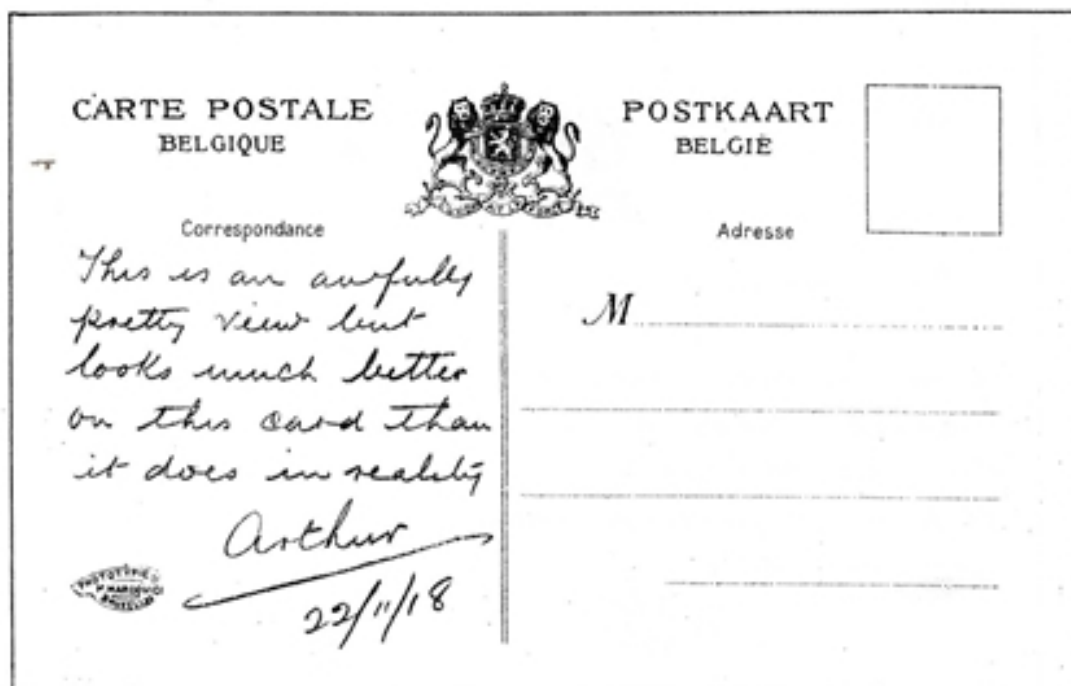 CARTE POSTALE
BELGIQUE
POSTKAART
BELGIË
Correspondance
Adresse
This is an awfully
pretty view but
looks much better
on this card than
it does in reality
Arthur
22/11/18
M
PHOTOTYPIE
BRUXELLES